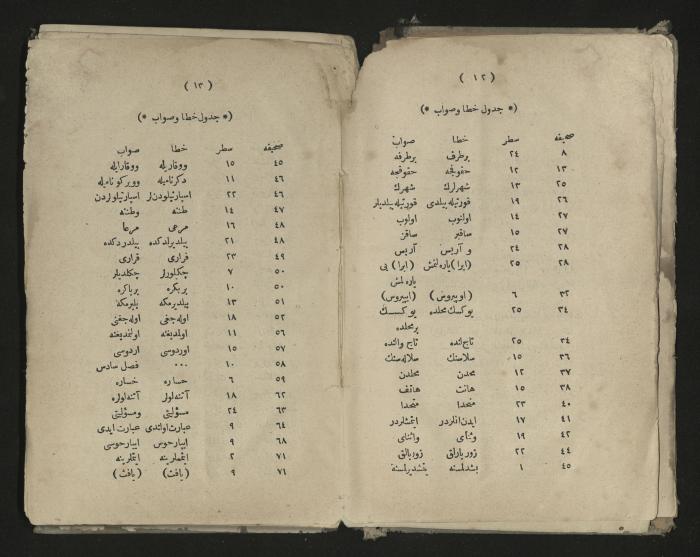 ( ١٢ )
(* جدول خطا وصواب *)
صحيفه سطر خطا صواب
٨ ٢٤ برطرف برطرفه
١٣ ١٢ حقوقجه حقوقجه
٢٥ ١٣ شهرلرك شهرك
٢٦ ١٩ قورتيله بيلدى قورتيله بيلديلر
٢٧ ١٤ اولنوب اولوب
٢٧ ١٥ ساقنر ساقز
٢٨ ٢٤ و آريس آريس
٢٨ ٢٥ (ايرا) ياره لنمش (ايرا) بى
ياره لمش
٣٢ ٦ (اوپيروس) (اپيروس)
٣٤ ٢٥ يوكسك محلده يوكسك
برمحلده
٣٤ ٢٥ تاج لنده تاج والنده
٣٦ ١٥ سلاسنك سلاله سنك
٣٧ ١٢ محدن محلدن
٣٨ ١٥ هانت هاتف
٤٠ ٢٣ متحدا متحدا
٤١ ١٧ ايدن انلردر ايتمشلردر
٤٢ ١٩ وثباى واثناى
٤٤ ٢٢ زور يارلق زوربالق
٤٥ ١ بشدلمسنه يتشديرلمسنه
( ١٣ )
(* جدول خطا وصواب *)
صحيفه سطر خطا صواب
٤٥ ١٥ ووقاريله ووقارايله
٤٦ ١١ دكرناميله وويركو ناميله
٤٦ ٢٢ اسپارتيلودن لر اسپارتيلولردن
٤٧ ١٤ طنه وطنه
٤٨ ١٦ مرعى مرعا
٤٨ ٢١ بيلديرلدكده بيلدردكده
٤٩ ٢٣ فرارى قرارى
٥٠ ٧ چكلورلر چكلديلر
٥٠ ١٠ بربكره برباكره
٥١ ١٣ پيلديرمكه پلپرمكه
٥٢ ١٨ اوله جغى اوله جغنى
٥٦ ١١ اولمديغنه اولنمديغنه
٥٧ ١٥ اوردوسى اردوسى
٥٨ ١٠ ٠٠٠ فصل سادس
٥٩ ٦ حساره خساره
٦٢ ١٨ آتنه لولر آتنه لولره
٦٣ ٢٤ مسؤليتى ومسؤليتى
٦٤ ٩ عبارت اولندى عبارت ايدى
٦٨ ٩ ايبارحوس ايپارحوسى
٧١ ٢ ايتملرينه ايتملرينه
٧١ ٩ (يافت) (يافث)